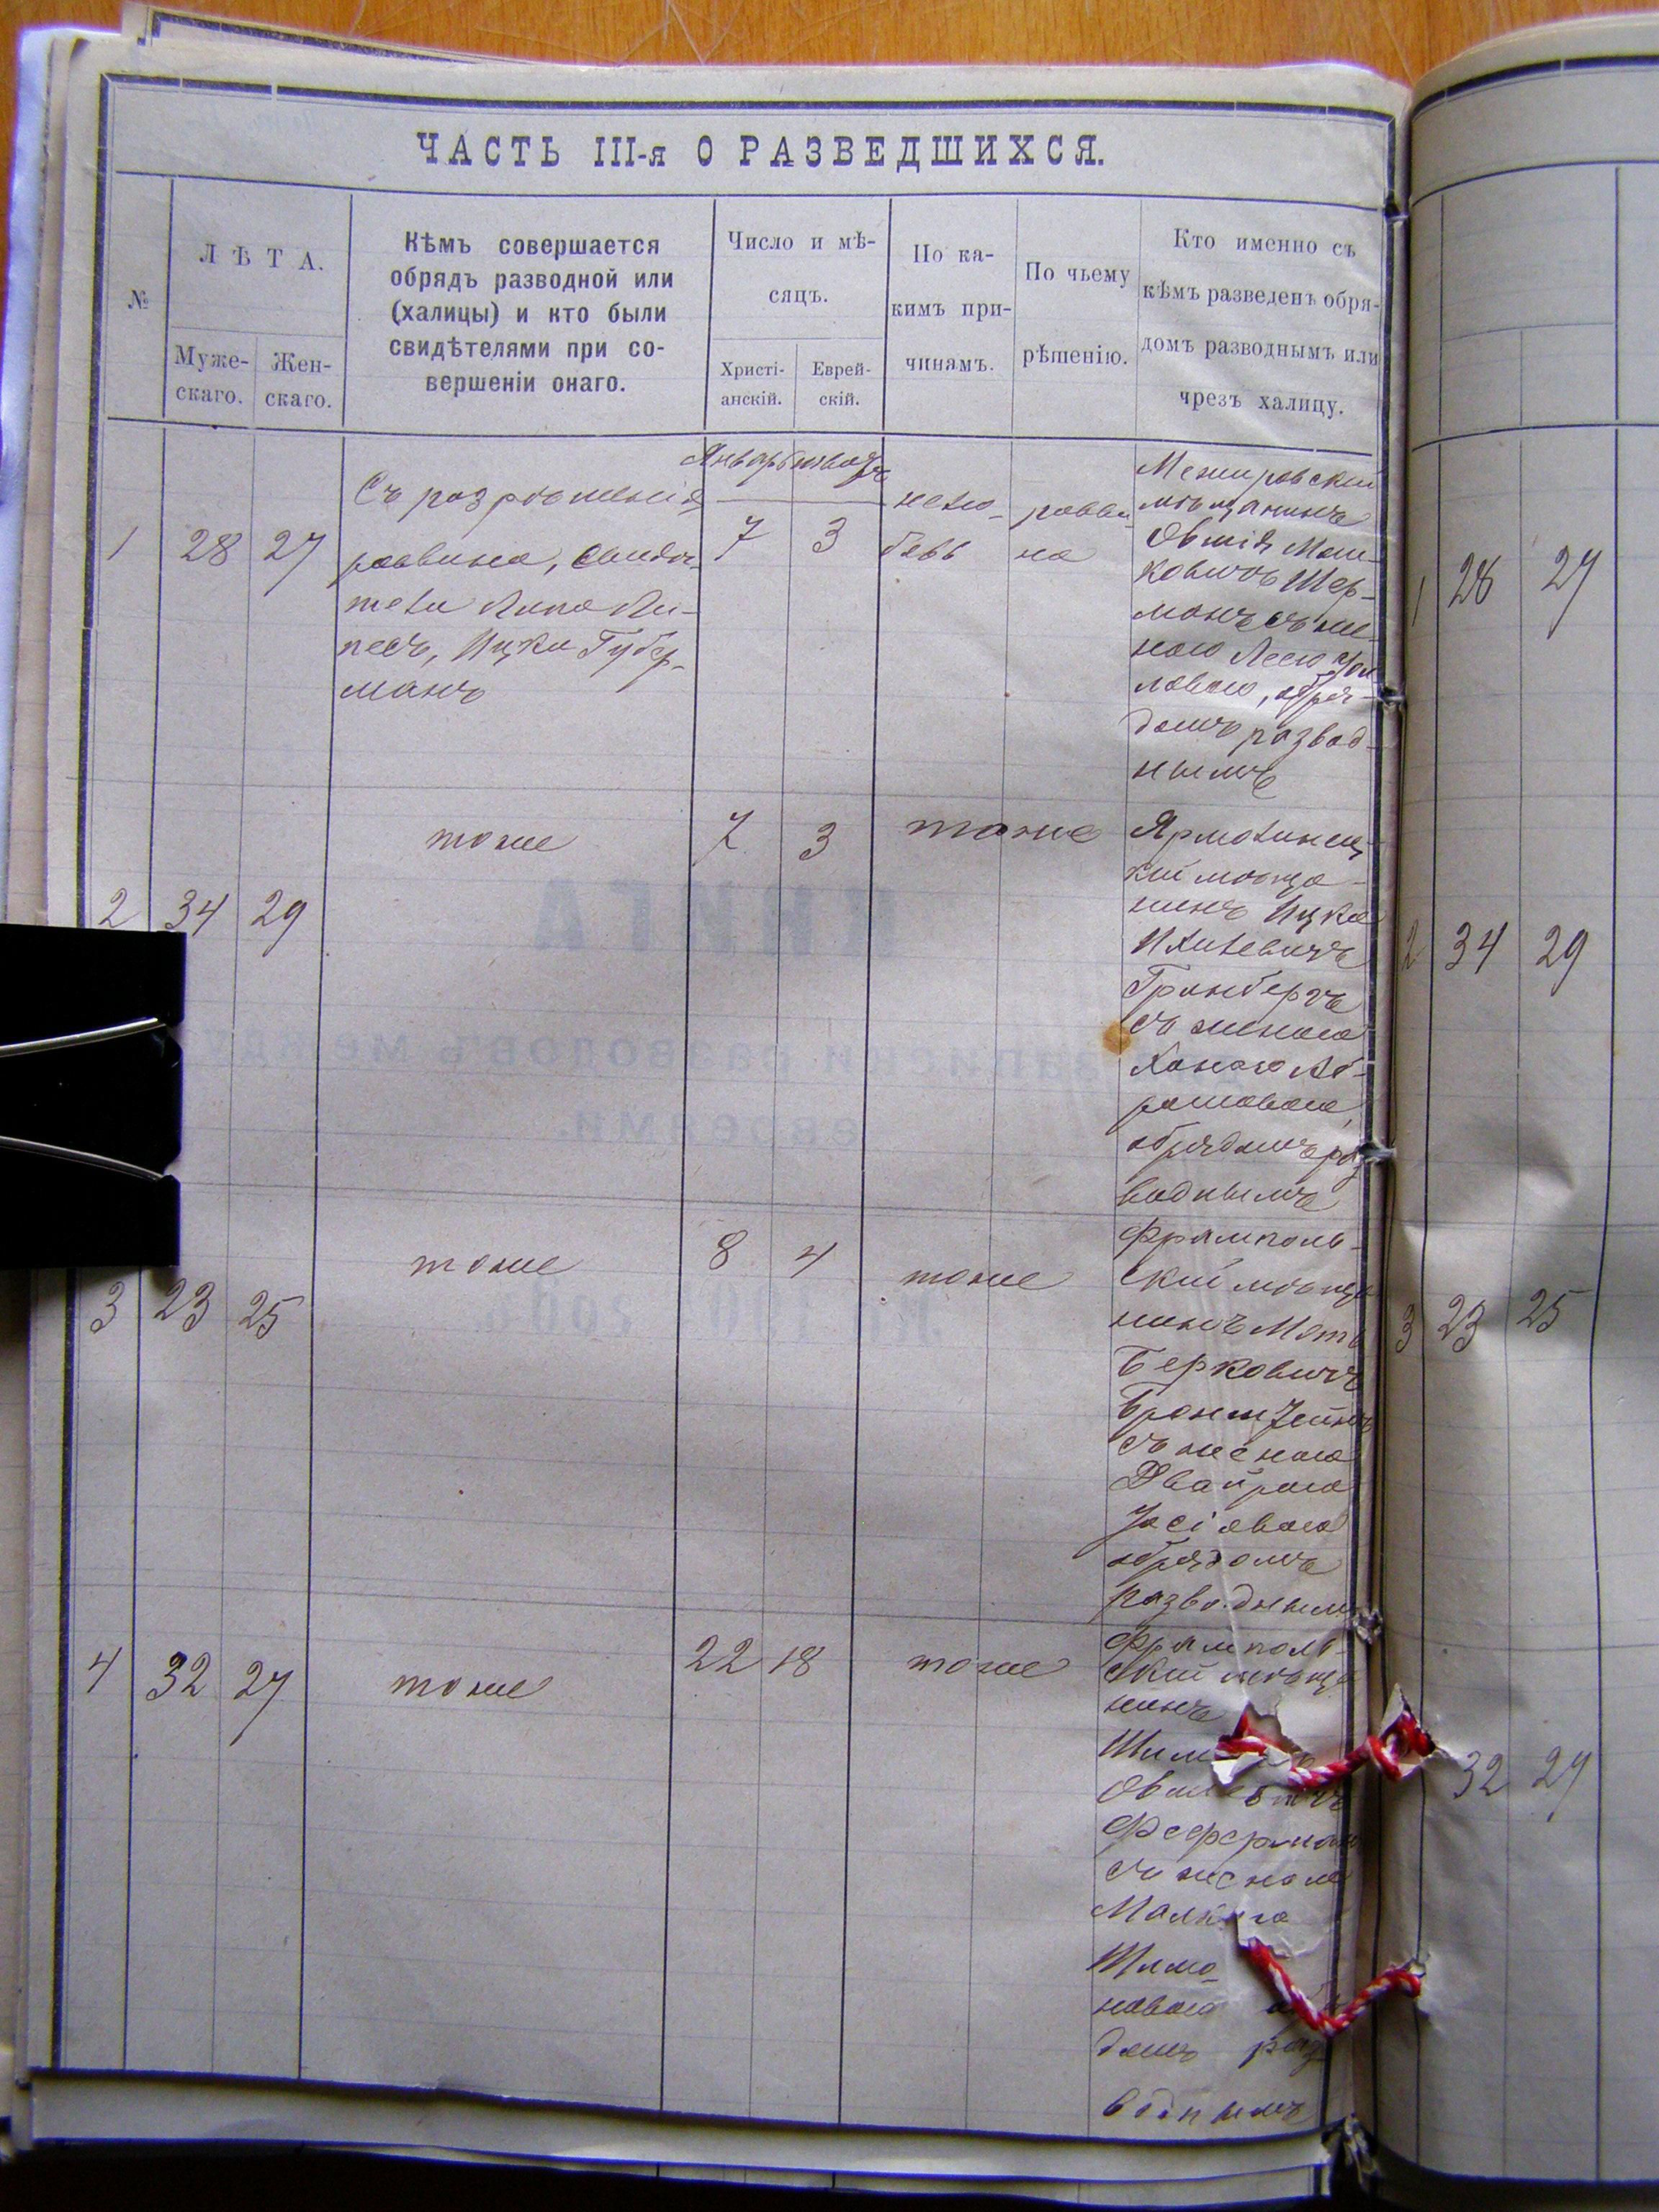 ЧАСТЬ III-я О РАЗВЕДШИХСЯ.
№
ЛѢТА.
Муже-
скаго.
Жен-
скаго.
Кѣмъ совершается
обрядъ разводной или
(халицы) и кто были
свидѣтелями при со-
вершеніи онаго.
Число и мѣ-
сяцъ.
Христі-
анскій.
Еврей-
скій.
По ка-
кимъ при-
чинамъ.
По чьему
рѣшенію.
Кто именно съ
кѣмъ разведенъ обря-
домъ разводнымъ или
чрезъ халицу.
1
28
27
Съ разрѣшенія
раввина, свидѣ-
тели Липа Ли-
песъ, Ицко Губер-
манъ
Январь
7
3
нелю-
бовь
равви-
на
мѣщанинъ
Овшія Мош-
ковичъ Шер-
манъ съ же-
ною Леею
обря-
домъ развод-
нымъ
2
34
29
тоже
7
3
тоже
Ярмолинец-
кій мѣща-
нинъ Ицко
Гринбергъ
съ женою
Ханою Аб-
рамовою,
обрядомъ раз
воднымъ
3
23
25
тоже
8
4
тоже
Фрамполь-
скій мѣща
нинъ
Берковичъ
Бронштейнъ
съ женою
Двойрою
обрядомъ
разводным
4
32
27
тоже
22
18
тоже
Фрамполь-
скій мѣща
нинъ
съ женою
Шимо-
новою
домъ раз
воднымъ
1
28
27
2
34
29
3
23
25
32
27